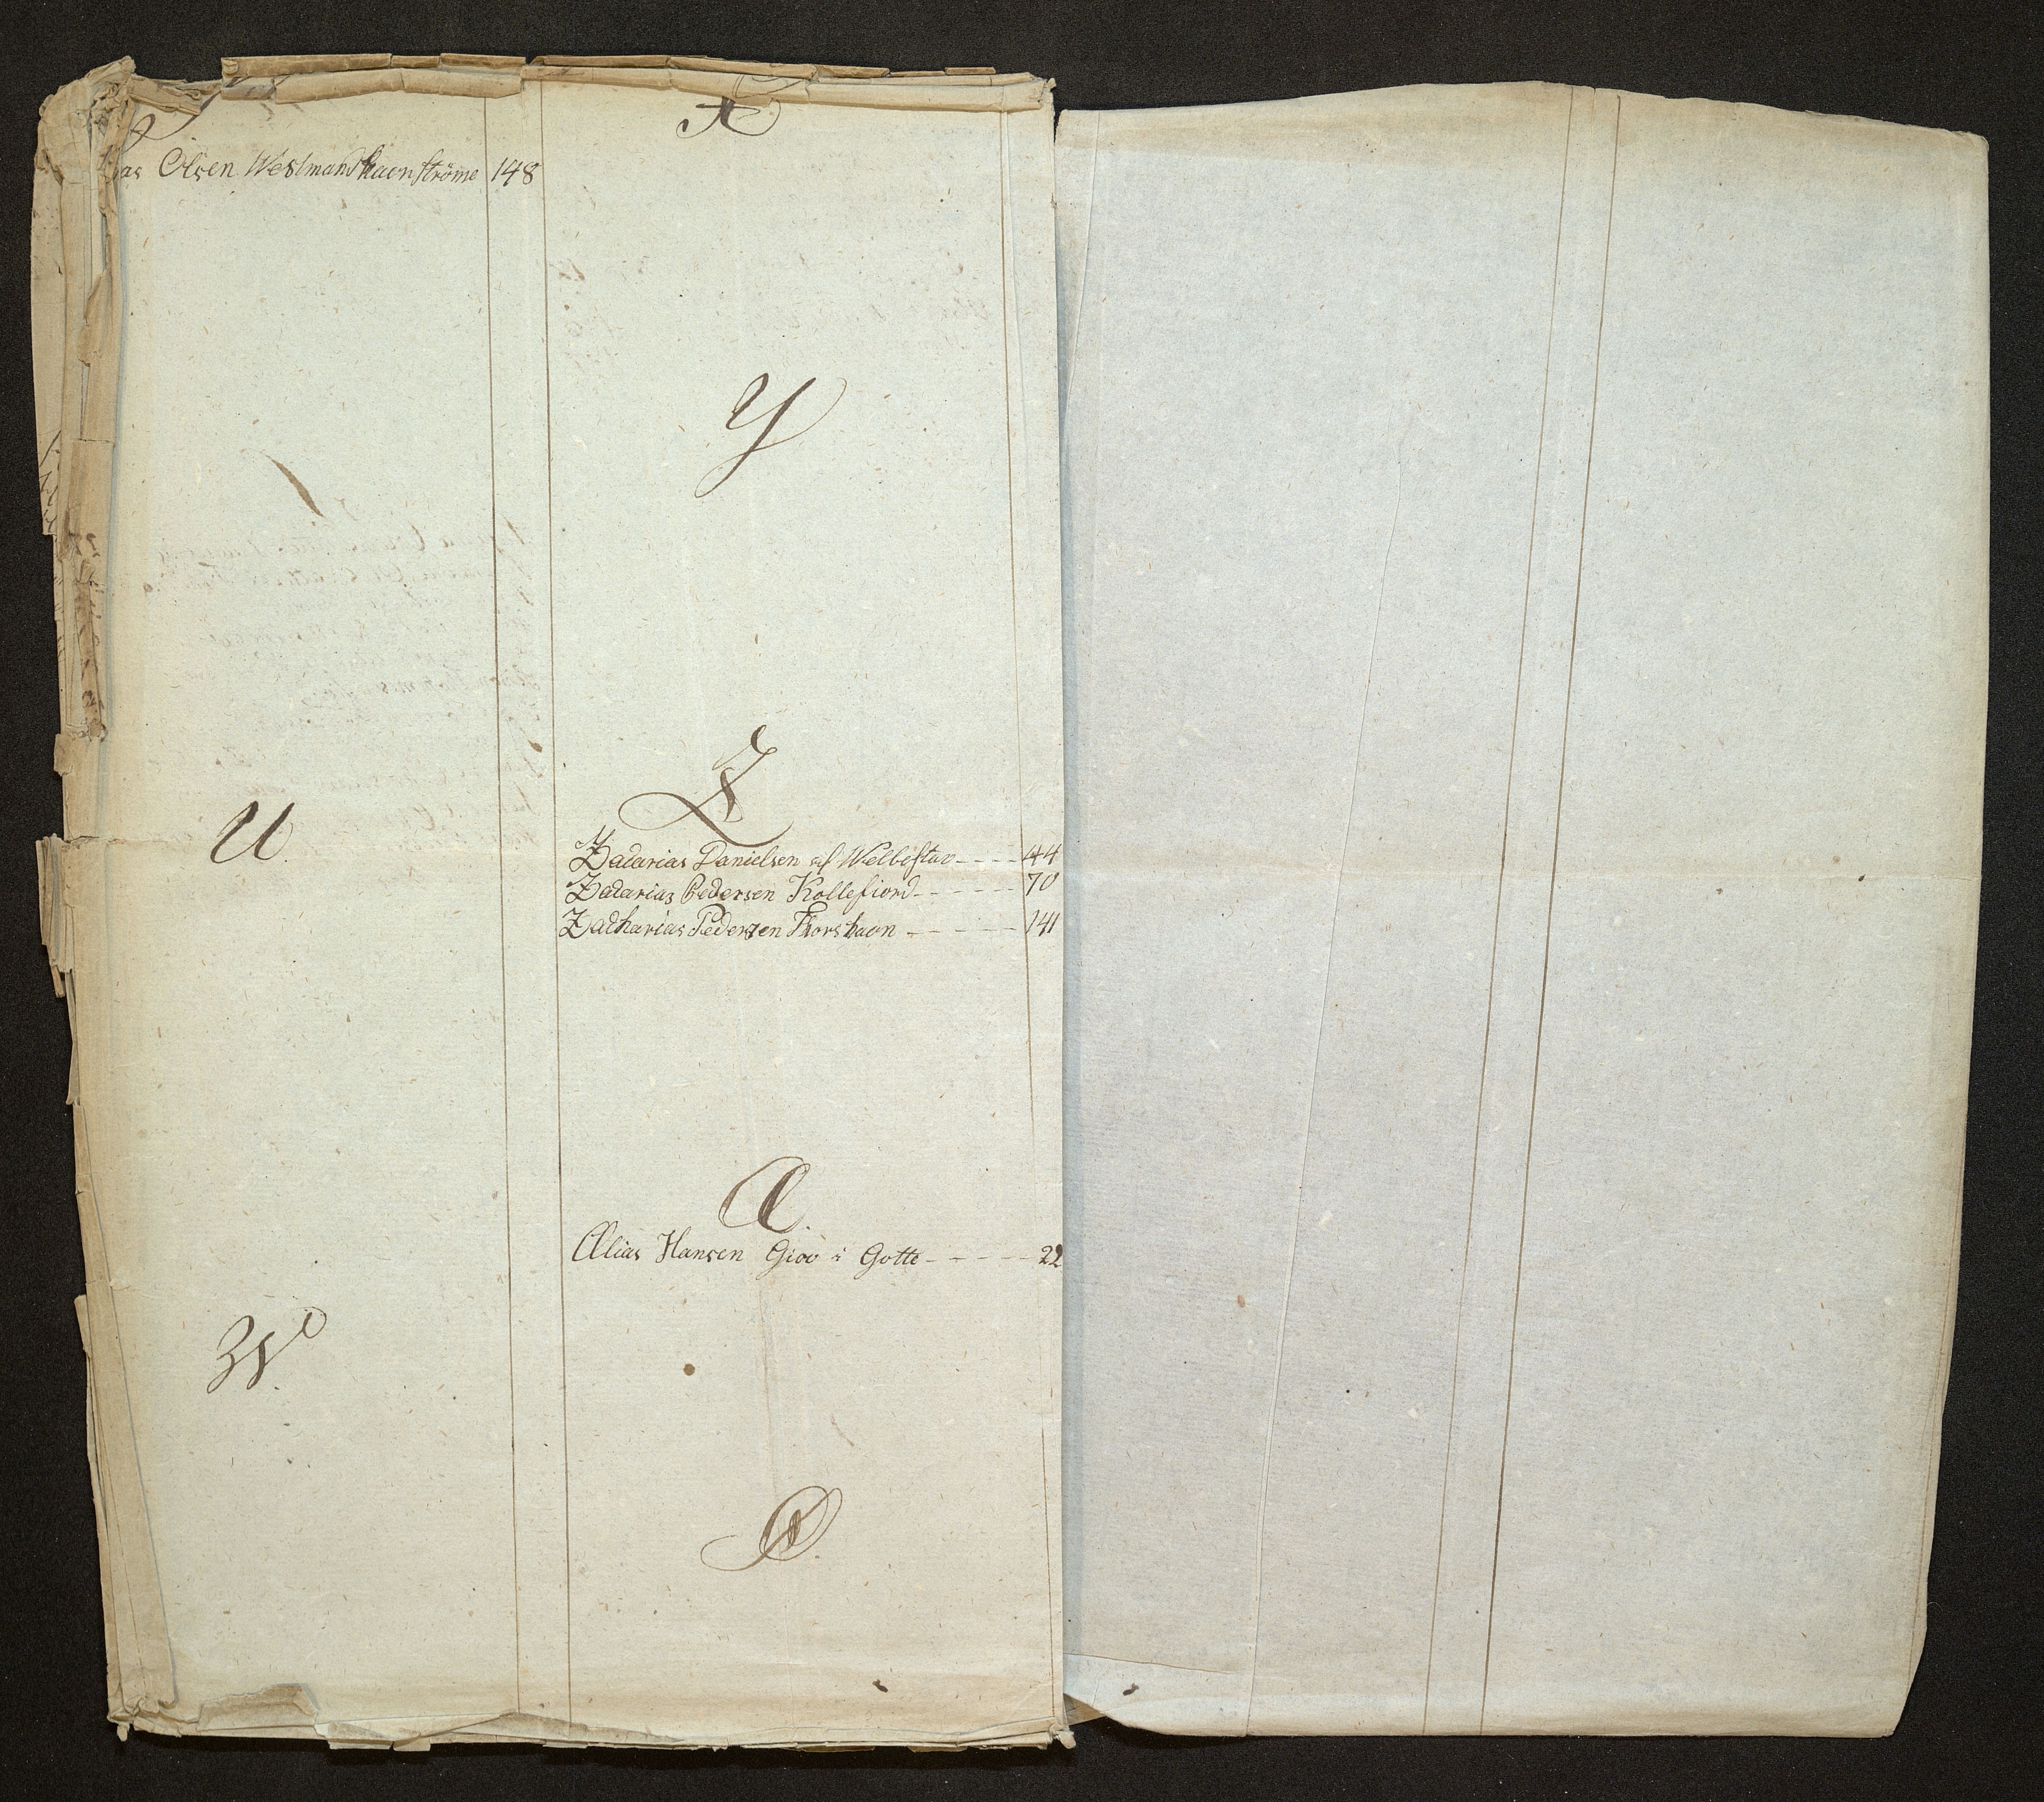 Olsen Westmanshavn Strøme 148
U
W
X
Y
Z
Zacarias Danielsen af Welbestav - - - - 44
Zacarias Pedersen Kollefiord - - - - - 70
Zacharias Pedersen Thorshavn - - - - - 141
Æ
Ælias Hansen Giov i Gotte - - - - - 22
Ø